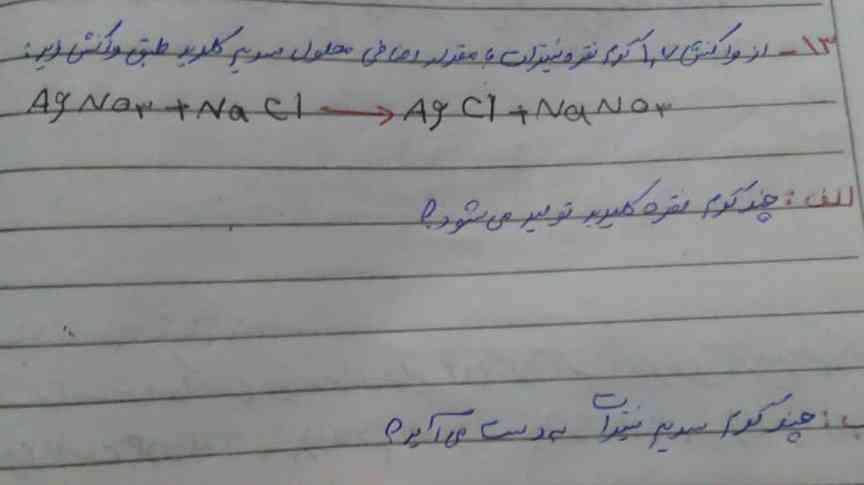 ۱۳- از واکنش ۱,۷ گرم نقره نیترات با مقدار اضافی محلول سدیم کلرید طبق واکنش زیر:
AgNO۳ + NaCl → AgCl + NaNO۳
الف: چند گرم نقره کلرید تولید می‌شود؟
ب: چند گرم سدیم نیترات به دست می‌آید؟